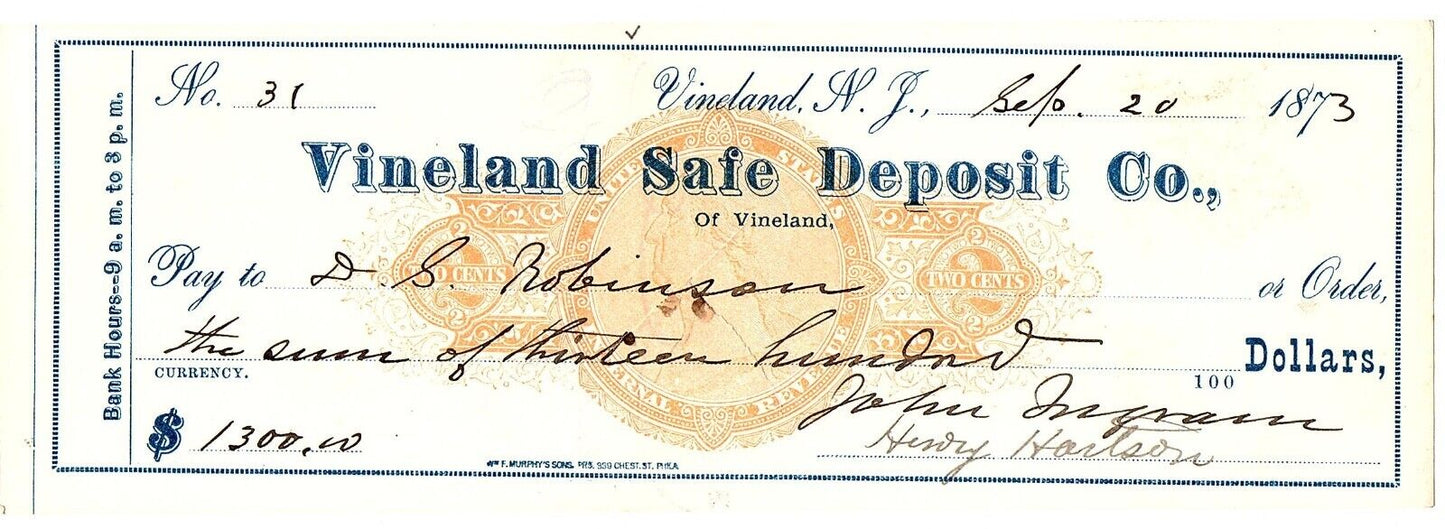 No. 31 Vineland, N. J., Sep. 20 1873
Bank Hours--9 a. m. to 3 p. m.
Vineland Safe Deposit Co.,
Of Vineland,
UNITED STATES
INTERNAL REVENUE
2 TWO CENTS 2
2 TWO CENTS 2
Pay to D. S. Robinson or Order,
the sum of thirteen hundred 100 Dollars,
CURRENCY.
John Ingram
$ 1300.00
Henry Hartson
Wm F. MURPHY'S SONS. PRS. 939 CHEST. ST. PHILA